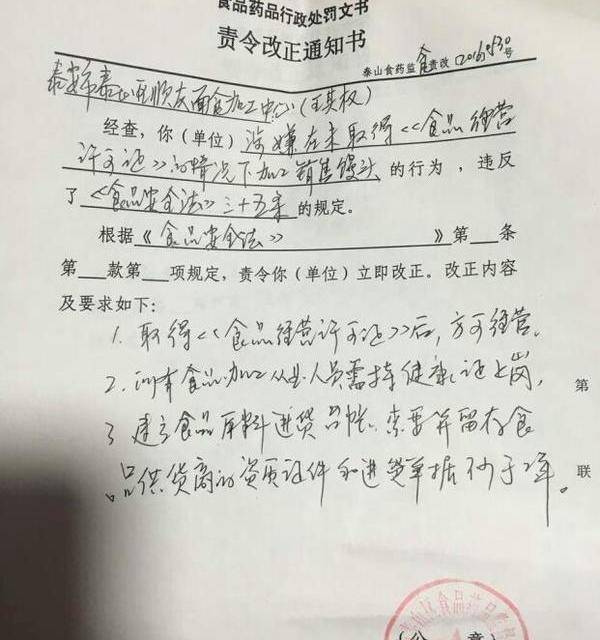 食品药品行政处罚文书
责令改正通知书
泰山食药监食责改 2016 0530 号
顺友面食加工中心(王其权)
经查,你(单位)涉嫌在未取得《食品经营
许可证》的情况下加工销售馒头的行为,违反
了《食品安全法》三十五条的规定。
根据《食品安全法》》第___条
第___款第___项规定,责令你(单位)立即改正。改正内容
及要求如下:
1. 取得《食品经营许可证》后,方可经营。
2. 所有食品加工从业人员需持健康证上岗,
3 建立食品原料进货台帐,索要并留存食
品供货商的资质证件和进货单据不少于2年。
第
联
(公 章)